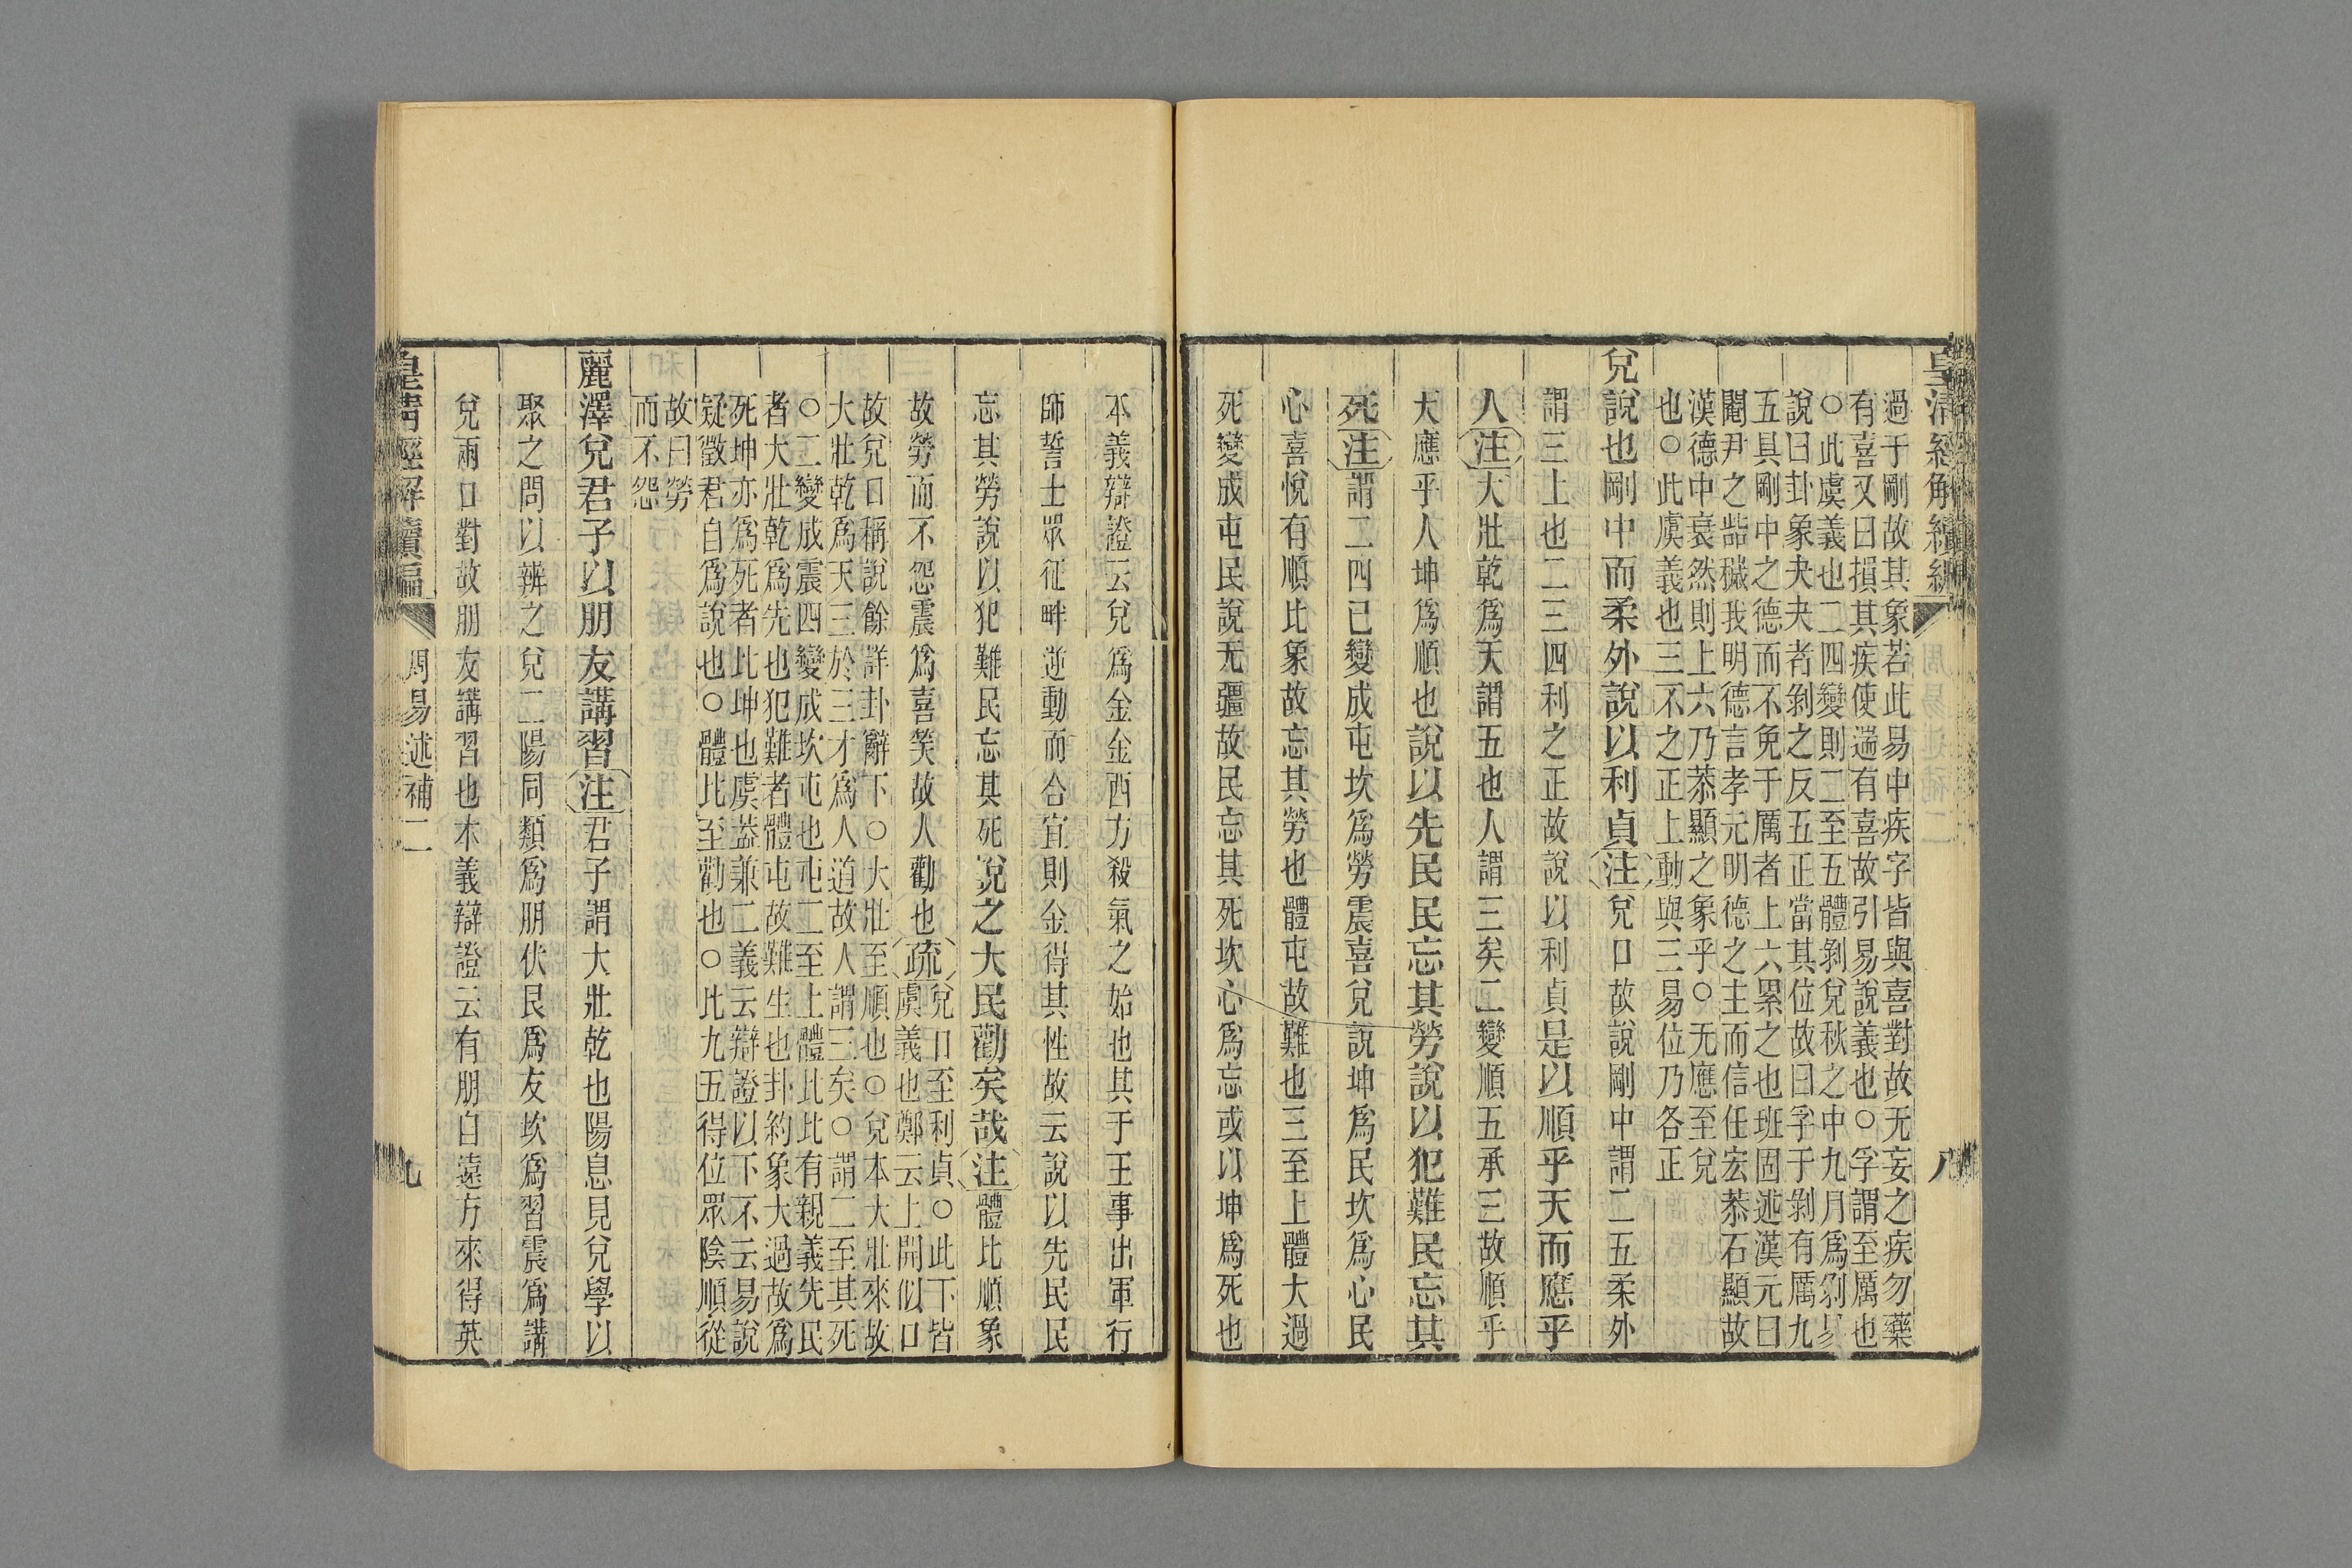 皇清經解續編
周易述補二
八
過于剛故其象若此易中疾字皆與喜對故无妄之疾勿藥
有喜又曰損其疾使遄有喜故引易說義也○孚謂至厲也
○此虞義也二四變則二至五體剝兌秋之中九月爲剝易
說曰卦象夬夬者剝之反五正當其位故曰孚于剝有厲九
五具剛中之德而不免于厲者上六累之也班固述漢元曰
閹尹之呰穢我明德言孝元明德之主而信任宏恭石顯故
漢德中衰然則上六乃恭顯之象乎○无應至兌
也○此虞義也三不之正上動與三易位乃各正
兌說也剛中而柔外說以利貞注兌口故說剛中謂二五柔外
謂三上也二三四利之正故說以利貞是以順乎天而應乎
人注大壯乾爲天謂五也人謂三矣二變順五承三故順乎
天應乎人坤爲順也說以先民民忘其勞說以犯難民忘其
死注謂二四已變成屯坎爲勞震喜兌說坤爲民坎爲心民
心喜悅有順比象故忘其勞也體屯故難也三至上體大過
死變成屯民說无疆故民忘其死坎心爲忘或以坤爲死也
本義辯證云兌爲金金西方殺氣之始也其于王事出軍行
師誓士眾征畔逆動而合宜則金得其性故云說以先民民
忘其勞說以犯難民忘其死說之大民勸矣哉注體比順象
故勞而不怨震爲喜笑故人勸也疏兌口至利貞○此下皆
虞義也鄭云上開似口
故兌口稱說餘詳卦辭下○大壯至順也○兌本大壯來故
大壯乾爲天三於三才爲人道故人謂三矣○謂二至其死
○二變成震四變成坎屯也屯二至上體比比有親義先民
者大壯乾爲先也犯難者體屯故難生也卦約象大過故爲
死坤亦爲死者比坤也虞葢兼二義云辯證以下不云易說
疑徵君自爲說也○體比至勸也○比九五得位眾陰順從
故曰勞
而不怨
麗澤兌君子以朋友講習注君子謂大壯乾也陽息見兌學以
聚之問以辨之兌二陽同類爲朋伏艮爲友坎爲習震爲講
兌兩口對故朋友講習也本義辯證云有朋自遠方來得英
皇清經解續編
周易述補二
九